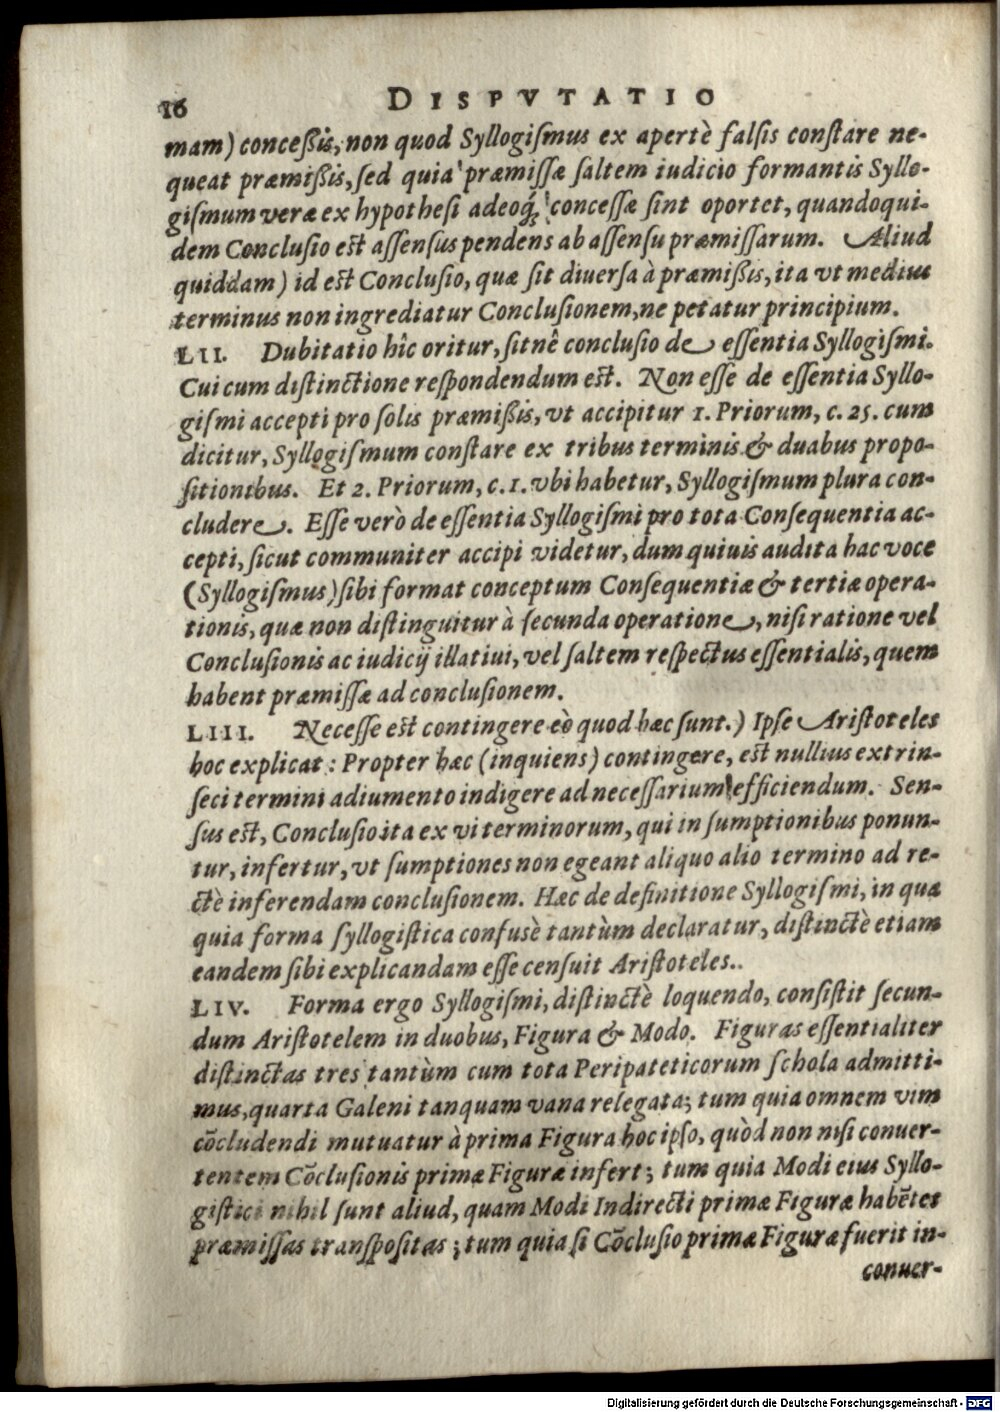 16 DISPVTATIO
mam) conceßis, non quod Syllogiſmus ex apertè falſis conſtare ne-
queat præmißis, ſed quia præmiſſæ ſaltem iudicio formantis Syllo-
giſmum veræ ex hypotheſi adeoq́; conceſſæ ſint oportet, quandoqui-
dem Concluſio est aſſenſus pendens ab aſſenſu præmiſſarum. Aliud
quiddam) id est Concluſio, quæ ſit diuerſa à præmißis, ita vt medius
terminus non ingrediatur Concluſionem, ne petatur principium.
LII. Dubitatio hîc oritur, ſitnê concluſio de eſſentia Syllogiſmi.
Cui cum diſtinctione reſpondendum est. Non eſſe de eſſentia Syllo-
giſmi accepti pro ſolis præmißis, vt accipitur 1. Priorum, c. 25. cum
dicitur, Syllogiſmum conſtare ex tribus terminis & duabus propo-
ſitionibus. Et 2. Priorum, c. 1. vbi habetur, Syllogiſmum plura con-
cludere. Eſſe verò de eſſentia Syllogiſmi pro tota Conſequentia ac-
cepti, ſicut communiter accipi videtur, dum quiuis audita hac voce
(Syllogiſmus) ſibi format conceptum Conſequentiæ & tertiæ opera-
tionis, quæ non diſtinguitur à ſecunda operatione, niſi ratione vel
Concluſionis ac iudicij illatiui, vel ſaltem reſpectus eſſentialis, quem
habent præmiſſæ ad concluſionem.
LIII. Neceſſe est contingere eò quod hæc ſunt.) Ipſe Ariſtoteles
hoc explicat: Propter hæc (inquiens) contingere, est nullius extrin-
ſeci termini adiumento indigere ad neceſſarium efficiendum. Sen-
ſus est, Concluſio ita ex vi terminorum, qui in ſumptionibus ponun-
tur, infertur, vt ſumptiones non egeant aliquo alio termino ad re-
ctè inferendam concluſionem. Hæc de definitione Syllogiſmi, in qua
quia forma ſyllogiſtica confusè tantùm declaratur, diſtinctè etiam
eandem ſibi explicandam eſſe cenſuit Ariſtoteles.
LIV. Forma ergo Syllogiſmi, diſtinctè loquendo, conſiſtit ſecun-
dum Ariſtotelem in duobus, Figura & Modo. Figuras eſſentialiter
diſtinctas tres tantùm cum tota Peripateticorum ſchola admitti-
mus, quarta Galeni tanquam vana relegata; tum quia omnem vim
cõcludendi mutuatur à prima Figura hoc ipſo, quòd non niſi conuer-
tentem Cõcluſionis primæ Figuræ infert; tum quia Modi eius Syllo-
giſtici nihil ſunt aliud, quam Modi Indirecti primæ Figuræ habẽtes
præmiſſas tranſpoſitas; tum quia ſi Cõcluſio primæ Figuræ fuerit in-
conuer-
Digitalisierung gefördert durch die Deutsche Forschungsgemeinschaft - DFG